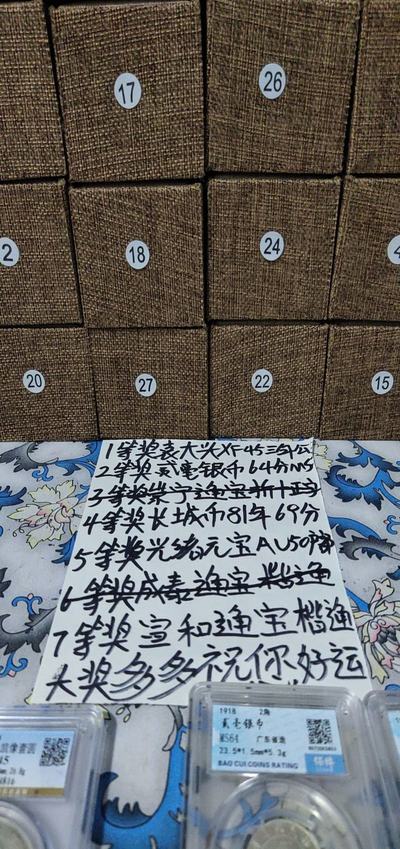 17
26
2
18
24
4
20
27
22
15
1等奖袁大头XF45三年公
2等奖贰毫银币64分MS
3等奖崇宁通宝折十
4等奖长城币81年69分
5等奖光绪元宝AU50
6等奖咸春通宝楷通
7等奖宣和通宝楷通
大奖多多祝你好运
像壹圆
45
1918 2角
贰毫银币
MS64 广东省造
23.5*1.5mm*5.3g
BAO CUI COINS RATING